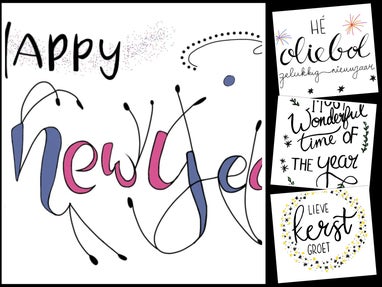 HAPPY
New Year
HÉ
oliebol
gelukkig nieuwjaar
Most
Wonderful
time OF
THE year
LIEVE
kerst
GROET